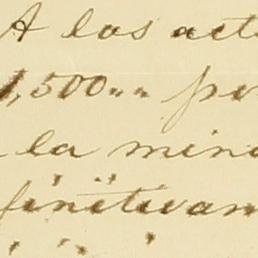 A los act
1,500"" pe
la mine
finitivam